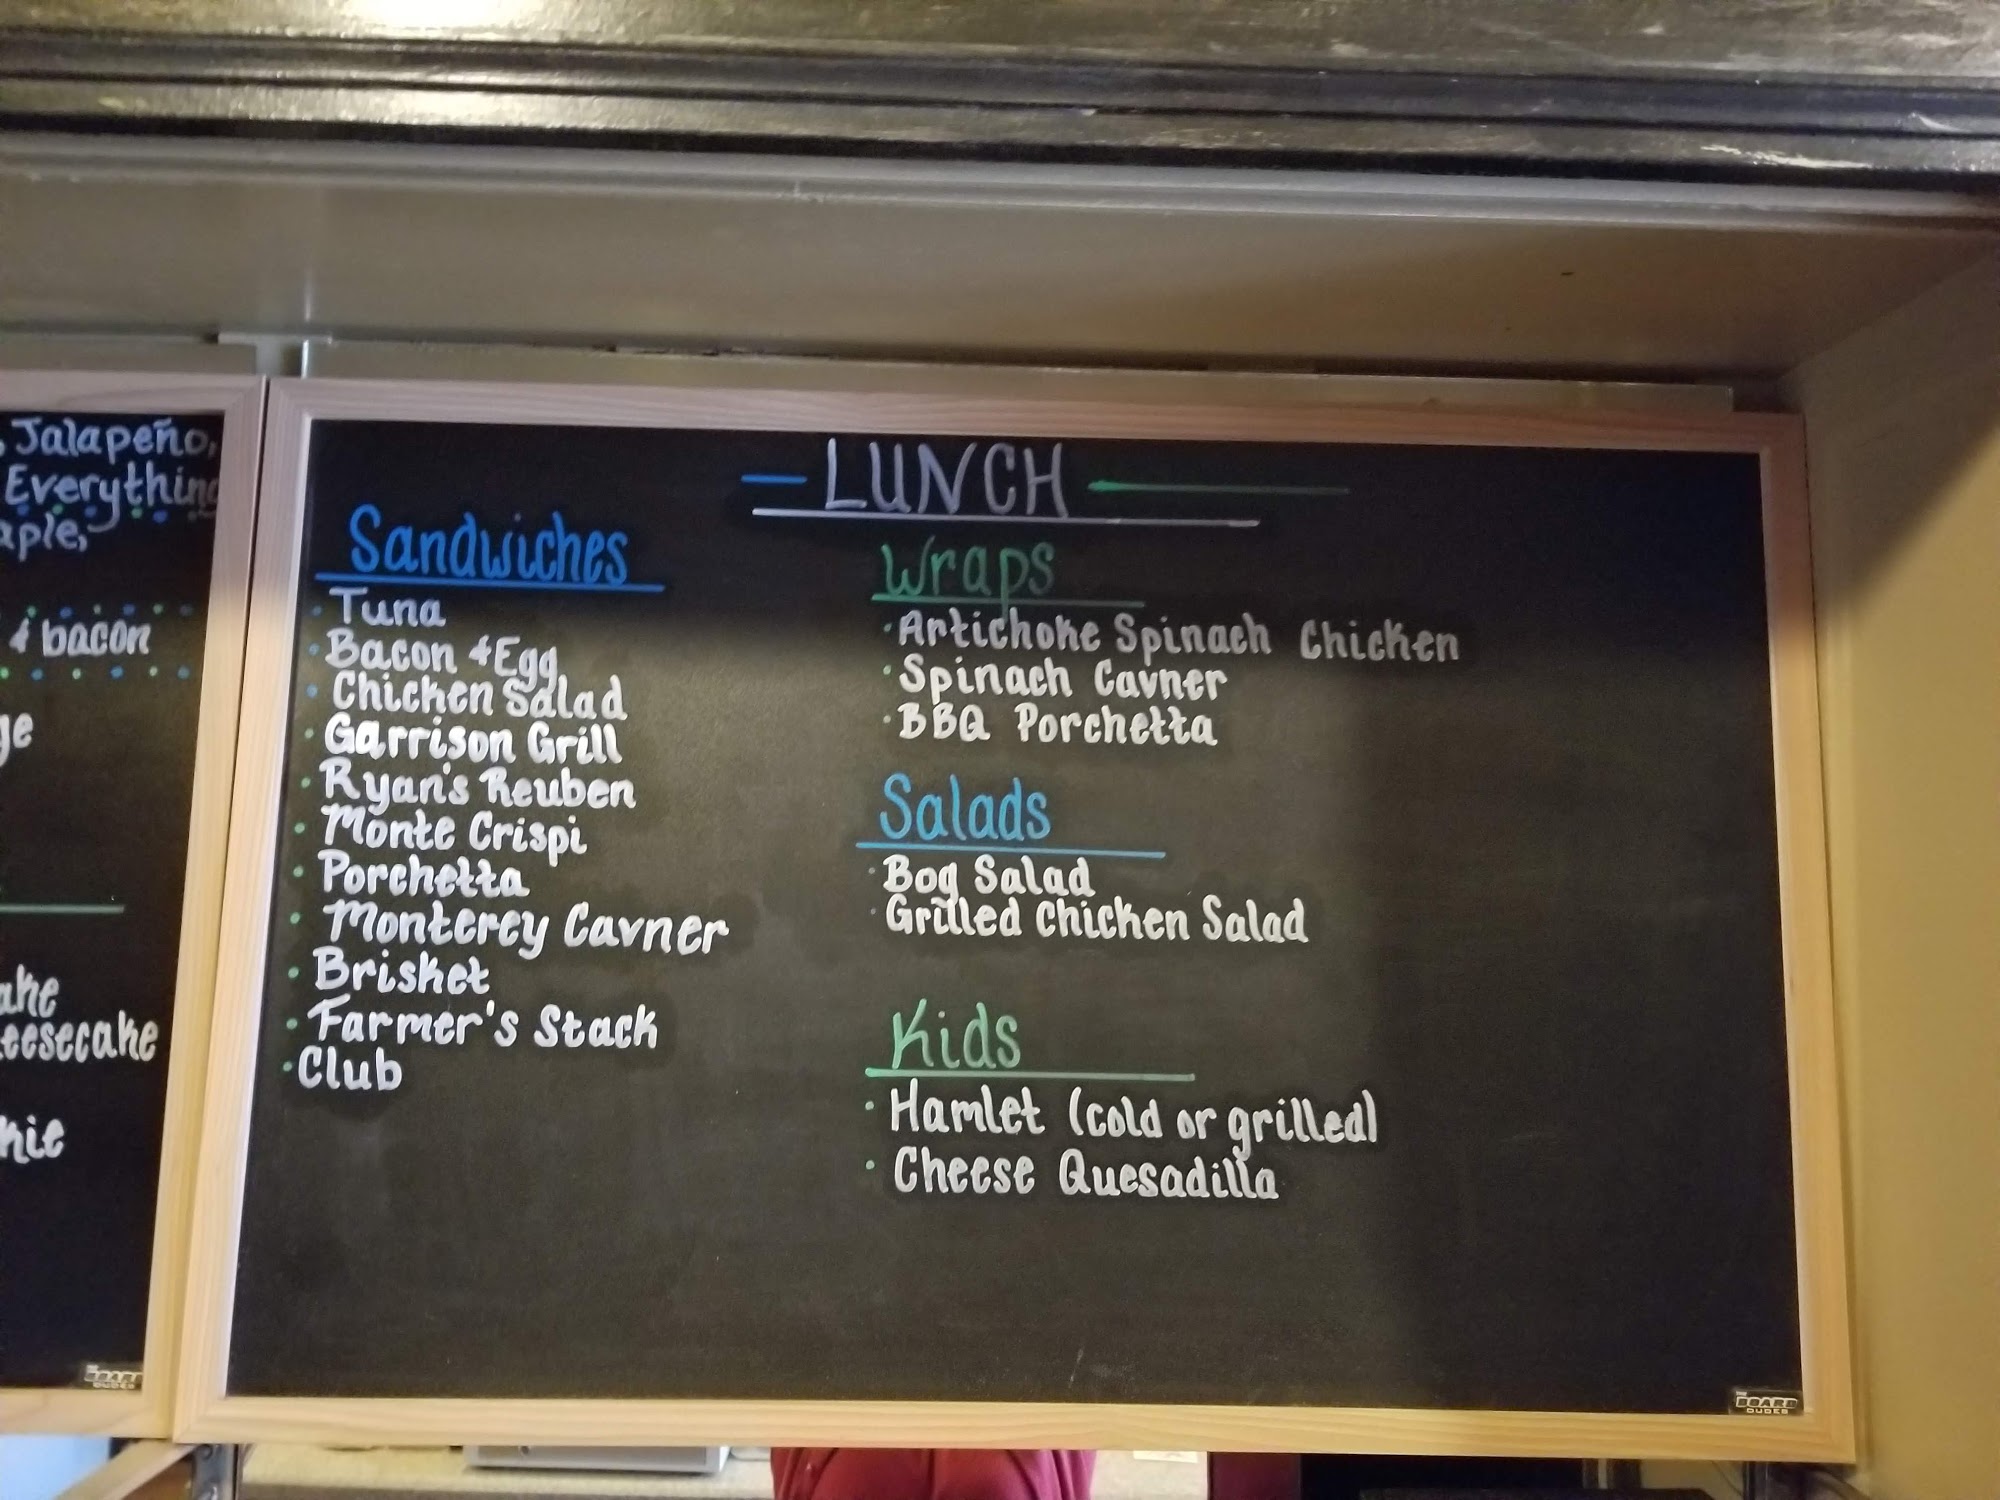 Jalapeño,
Everything
& bacon
LUNCH
Sandwiches
· Tuna
· Bacon & Egg
· Chicken Salad
· Garrison Grill
· Ryan's Reuben
· Monte Crispi
· Porchetta
· Monterey Cavner
· Brisket
· Farmer's Stack
· Club
Wraps
· Artichoke Spinach Chicken
· Spinach Cavner
· BBQ Porchetta
Salads
· Bog Salad
· Grilled Chicken Salad
Kids
· Hamlet (cold or grilled)
· Cheese Quesadilla
THE BOARD DUDES
THE BOARD DUDES